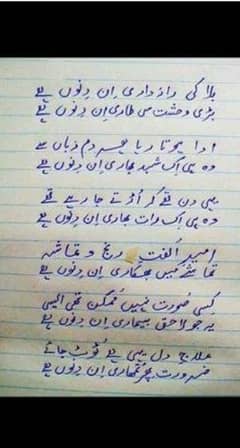 بلا کی رازداری ان دنوں ہے
بڑی وحشت سی طاری ان دنوں ہے
ادا ہوتا رہا جو دم زباں سے
وہ ہی اک شبد بھاری ان دنوں ہے
یہی دن تھے کہ اڑتے جا رہے تھے
وہ ہی اک رات بھاری ان دنوں ہے
امید الفت رنج و تماشہ
تماشے میں بھکاری ان دنوں ہے
کسی صورت نہیں ممکن تھی ایسی
یہ جو لاحق بیماری ان دنوں ہے
علاج دل یہی ہے ٹوٹ جائے
ضرورت پھر تمھاری ان دنوں ہے